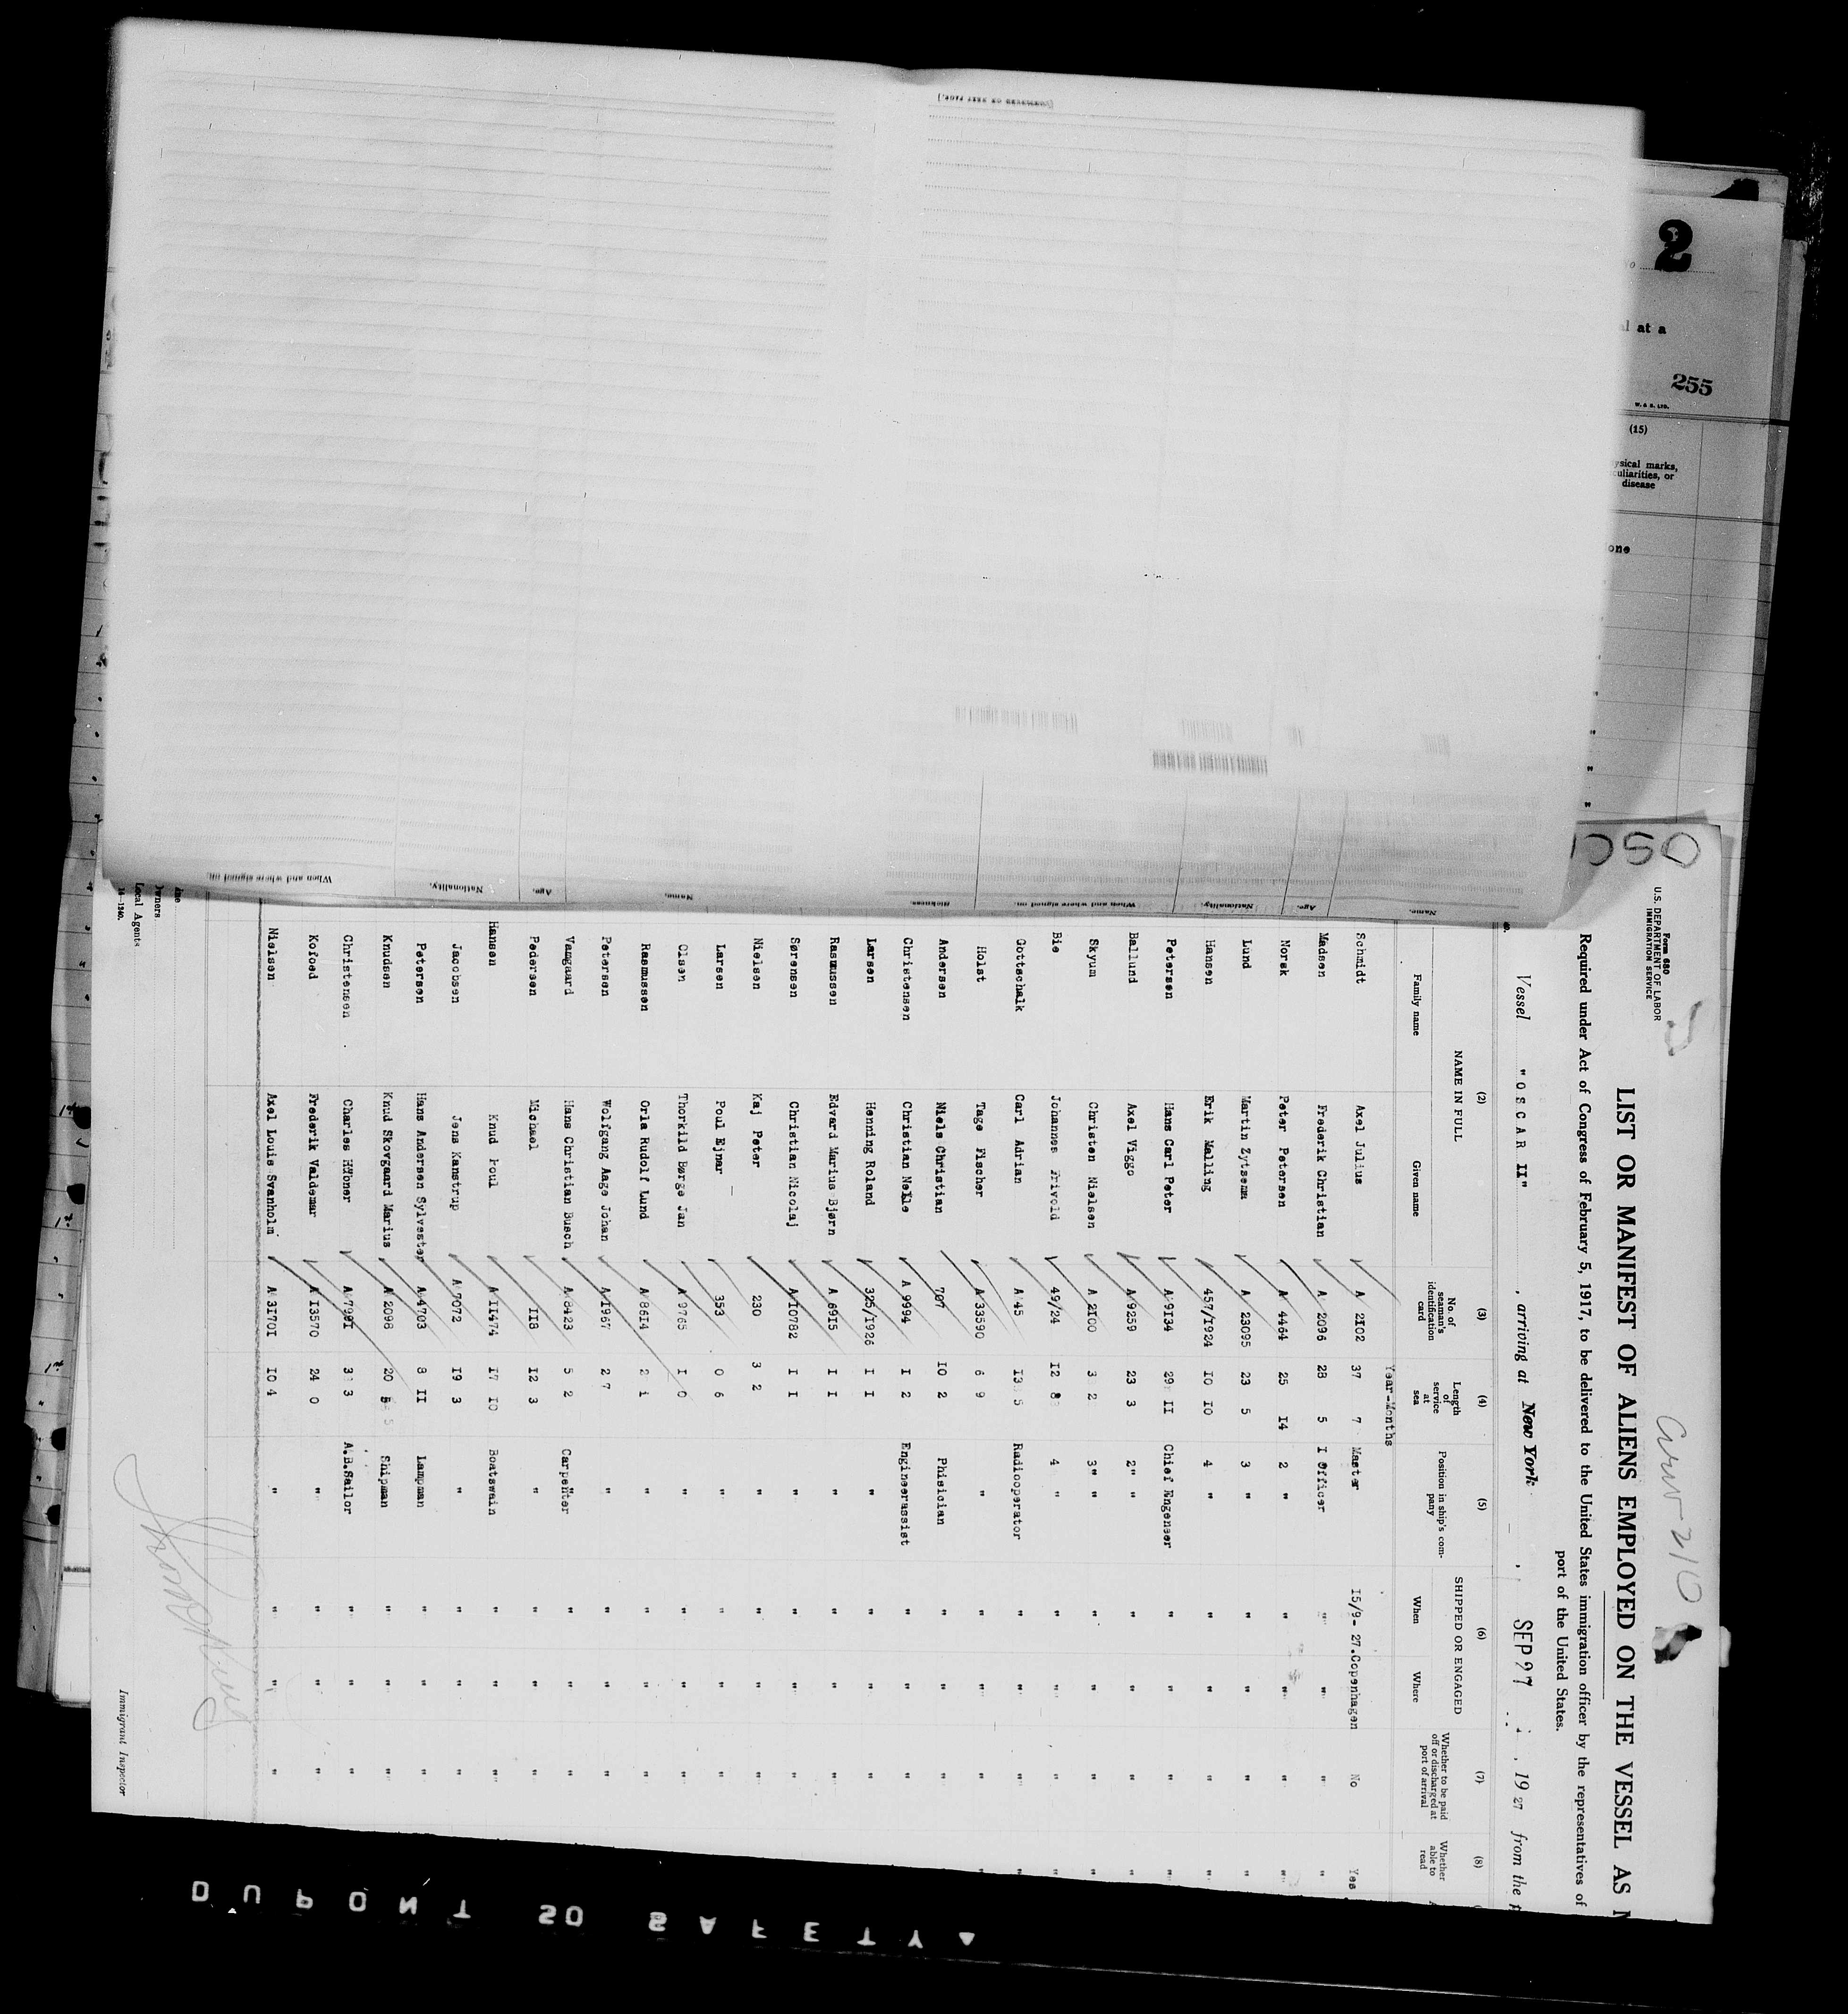 2
al at a
255
W. & S. LTD.
(15)
ysical marks,
culiarities, or
disease
one
Form 680
U.S. DEPARTMENT OF LABOR
IMMIGRATION SERVICE
LIST OR MANIFEST OF ALIENS EMPLOYED ON THE VESSEL AS M
Required under Act of Congress of February 5, 1917, to be delivered to the United States immigration officer by the representatives of
port of the United States.
Vessel "OSCAR II" , arriving at New York , SEP 27 , 1927 from the p
(2) (3) (4) (5) (6) (7) (8)
NAME IN FULL No. of seaman's identification card Length of service at sea Position in ship's company SHIPPED OR ENGAGED Whether to be paid off or discharged at port of arrival Whether able to read
Family name Given name When Where
Year-Months
Schmidt Axel Julius A 2102 37 7 Master 15/9-27. Copenhagen No Yes
Madsen Frederik Christian A 2096 28 5 I Officer " " " "
Norsk Peter Petersen A 4464 25 14 2 " " " " "
Lund Martin Zytsema A 23095 23 5 3 " " " " "
Hansen Erik Malling 457/1924 10 10 4 " " " " "
Petersen Hans Carl Peter A 9134 29 II Chief Engeneer " " " "
Ballund Axel Viggo A 9259 23 3 2" " " " " "
Skyum Christen Nielsen A 2100 3 2 3" " " " " "
Bie Johannes Frivold 49/24 12 8 4 " " " " "
Gottschalk Carl Adrian A 45 13 5 Radiooperator " " " "
Holst Tage Fischer A 33590 6 9 " " " " "
Andersen Niels Christian 707 10 2 Phisician " " "
Christensen Christian Nelle A 9994 I 2 Engineerassist " " "
Larsen Henning Roland 325/1926 I I " " " "
Rasmussen Edvard Marius Bjørn A 6915 I I " " " "
Sørensen Christian Nicolaj A 10782 I I " " " "
Nielsen Kaj Peter 230 3 2 " " " "
Larsen Poul Ejnar 353 0 6 " " " "
Olsen Thorkild Børge Jan A 9765 I 0 " " " "
Rasmussen Orla Rudolf Lund A 8614 2 1 " " " "
Petersen Wolfgang Aage Johan A 1967 2 7 " " " "
Vamgaard Hans Christian Busch A 8423 5 2 Carpenter " " "
Pedersen Michael 118 12 3 " " " "
Hansen Knud Poul A 11474 17 10 Boatswain " " "
Jacobsen Jens Kanstrup A 7072 19 3 " " " "
Petersen Hans Andersen Sylvester A 4703 8 II Lampman " " "
Knudsen Knud Skovgaard Marius A 2098 20 5 Shipman " " "
Christensen Charles A 7991 3 3 A.B.Sailor " " "
Kofoed Frederik Valdemar A 13570 24 0 " " " "
Nielsen Axel Louis Svanholm A 31701 10 4 " " " "
Owners
Local Agents
14—1240.
Immigrant Inspector
[CONTINUED ON NEXT PAGE.]
Name. Age. Nationality. When and where signed on. Sickness.
Name. Age. Nationality. When and where signed on.
DUPONT SO SAFETY